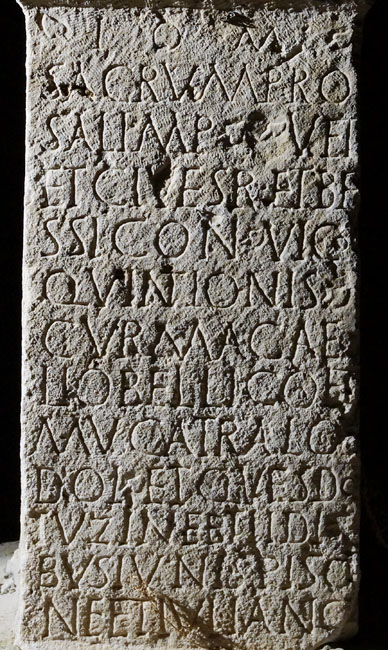 I O M
SACRVM PRO
SAL IMP VET
ET CIVES R ET BE
SSI CON VIC
QVINTIONIS
CVR MAG AE
LIO BELLICO E
MVCATRALO
DOLI ET QVES DO
TVZINEBTI IDI
BVS IVNIS PISO
NE ET IVLIANO